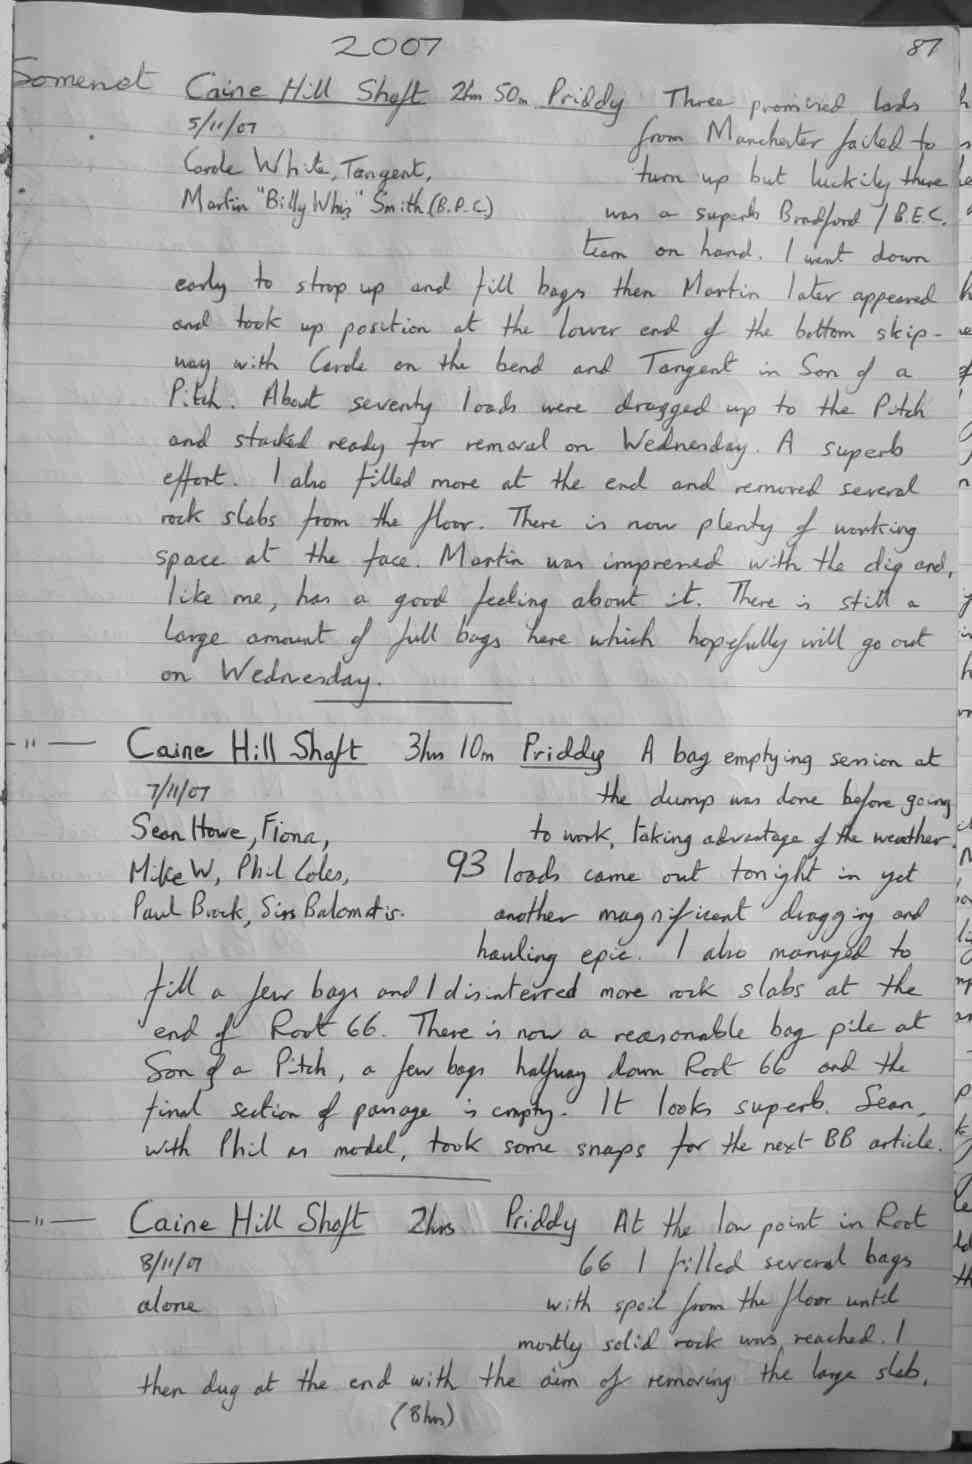 2007 87
Somerset Caine Hill Shaft 2hrs 50m Priddy Three promised lads
5/11/07 from Manchester failed to
Carole White, Tangent, turn up but luckily there
Martin "Billy Whis" Smith (B.P.C.) was a superb Bradford / B.E.C.
team on hand. I went down
early to strop up and fill bags then Martin later appeared
and took up position at the lower end of the bottom skip-
way with Carole on the bend and Tangent in Son of a
Pitch. About seventy loads were dragged up to the Pitch
and stacked ready for removal on Wednesday. A superb
effort. I also filled more at the end and removed several
rock slabs from the floor. There is now plenty of working
space at the face. Martin was impressed with the dig and,
like me, has a good feeling about it. There is still a
large amount of full bags here which hopefully will go out
on Wednesday.
-"- Caine Hill Shaft 3hrs 10m Priddy A bag emptying session at
7/11/07 the dump was done before going
Sean Howe, Fiona, to work, taking advantage of the weather.
Mike W, Phil Coles, 93 loads came out tonight in yet
Paul Brock, Siss Balomatis. another magnificent dragging and
hauling epic. I also managed to
fill a few bags and I disinterred more rock slabs at the
end of Root 66. There is now a reasonable bag pile at
Son of a Pitch, a few bags halfway down Root 66 and the
final section of passage is empty. It looks superb. Sean,
with Phil as model, took some snaps for the next BB article.
-"- Caine Hill Shaft 2hrs Priddy At the low point in Root
8/11/07 66 I filled several bags
alone with spoil from the floor until
mostly solid rock was reached. I
then dug at the end with the aim of removing the large slab,
(8hrs)